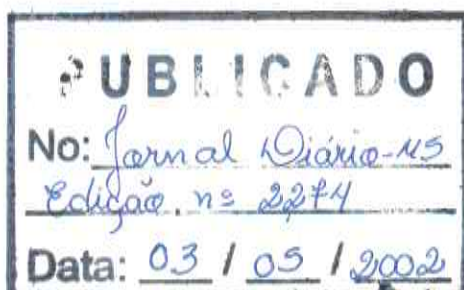 PUBLICADO
No: Jornal Diário-MS
Edição nº 2274
Data: 03 / 05 / 2002